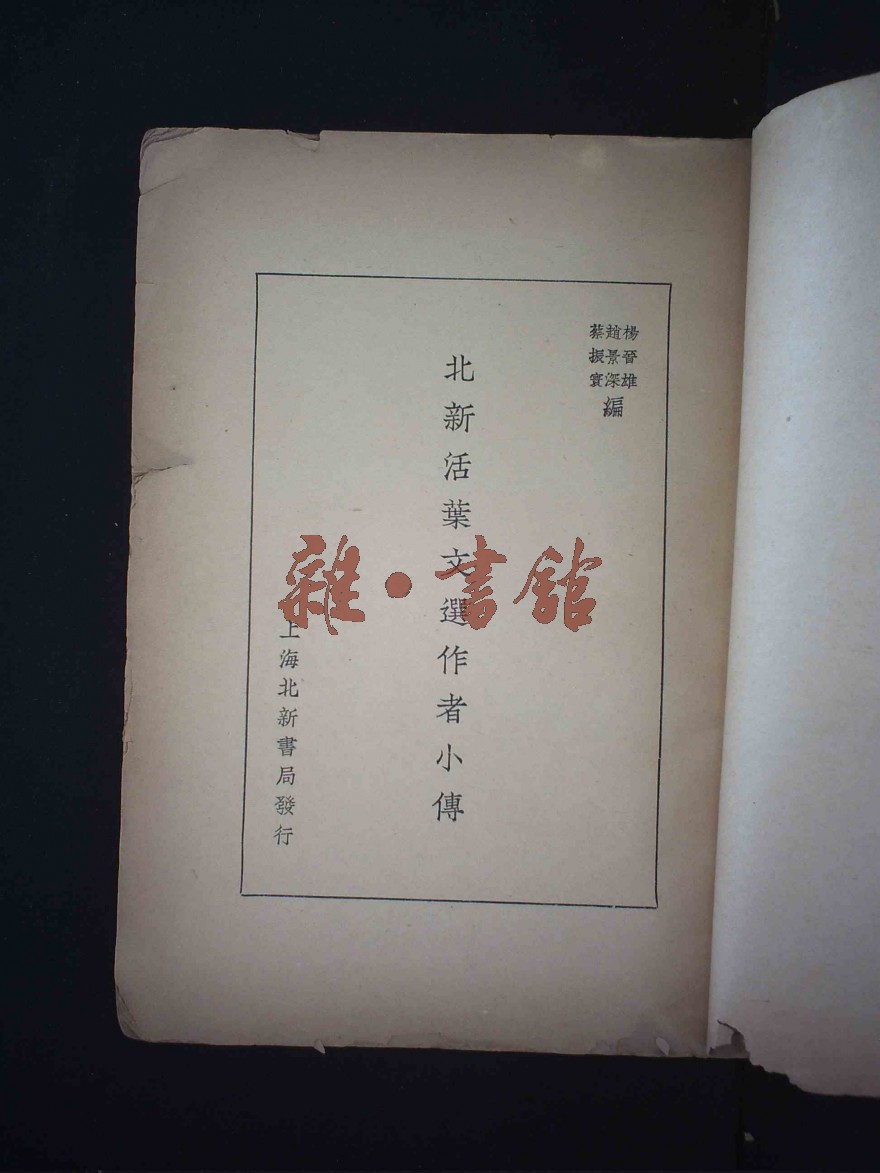 楊晉雄
趙景深
蔡振寰
編
北新活葉文選作者小傳
上海北新書局發行
雜·書館